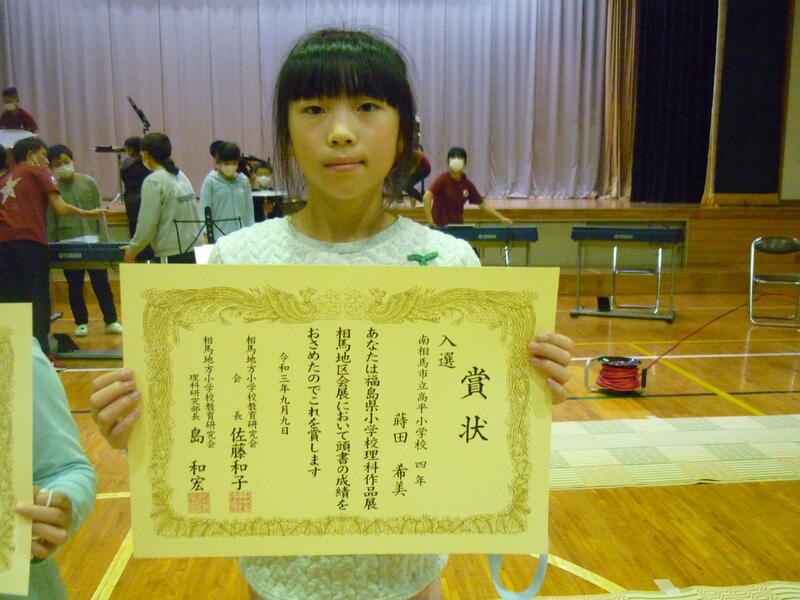 賞状
入選
南相馬市立高平小学校 四年
蒔田 希美
あなたは福島県小学校理科作品展
相馬地区会展において頭書の成績を
おさめたのでこれを賞します
令和三年九月九日
相馬地方小学校教育研究会
会長 佐藤和子
相馬地方小学校教育研究会
理科研究部長 島 和宏
YAMAHA